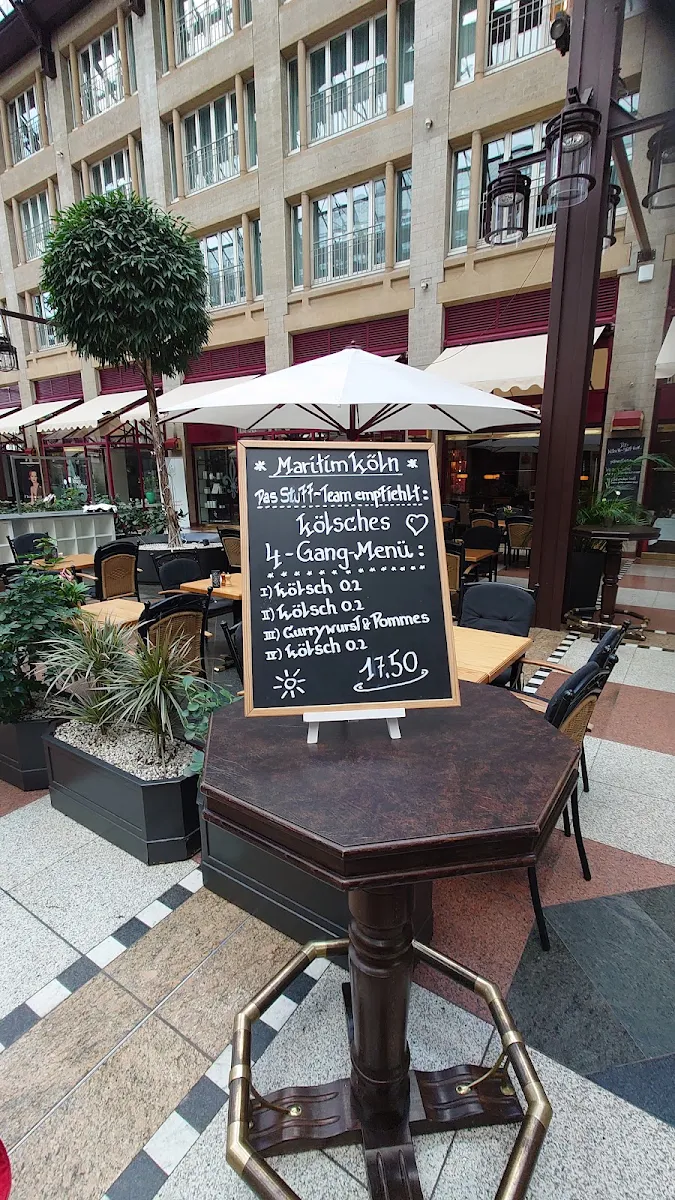 * Maritim Köln *
Das Stüff-Team empfiehlt:
Kölsches ♡
4-Gang-Menü:
I) Kölsch 0.2
II) Kölsch 0.2
III) Currywurst & Pommes
IV) Kölsch 0.2
17.50